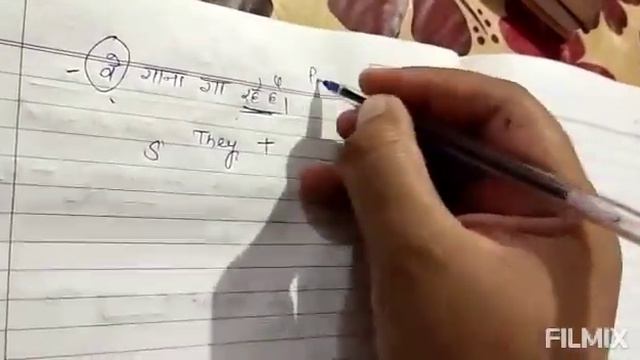 - वे गाना गा रहे है। P
S They +
FILMIX